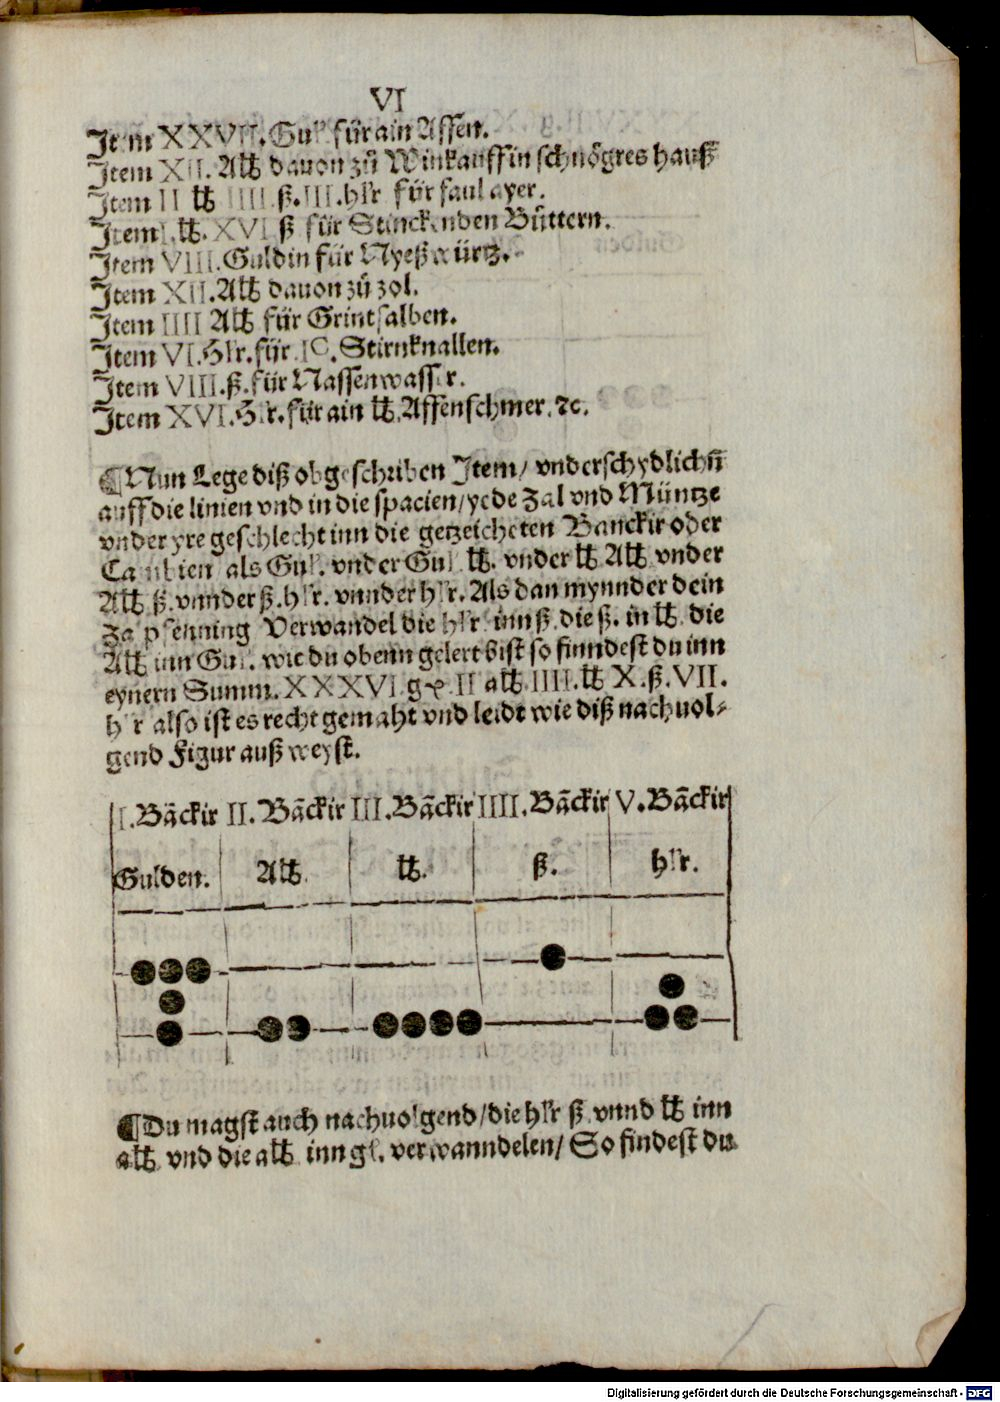 VI
Item XXVII. Gul für ain Affen.
Item XII. Alb davon zů Winkauff in schnögres hauß
Item II lb IIII ß. III. hlr für faul ayer.
Item I. lb. XVI ß für Stinckenden Büttern.
Item VIII. Guldin für Nyeßwürtz.
Item XII. Alb dauon zů zol.
Item IIII Alb für Grintsalben.
Item VI. Hlr. für IC. Stirnknallen.
Item VIII. ß. für Nassenwasser.
Item XVI. Hlr. für ain lb. Affenschmer. ⁊c.
¶ Nun Lege diß obgeschriben Item / vnderschydlichñ
auff die linien vnd in die spacien / yede Zal vnd Müntze
vnder yre geschlecht inn die getzeicheten Banckir oder
als Gul. vnder Gul lb. vnder lb Alb vnder
Alb ß. vnnder ß. hlr. vnnder hlr. Als dan mynnder dein
Verwandel die hlr inn ß. die ß. in lb die
Alb inn Gul. wie du obenn gelert bist so finndest du inn
eynern Summ. XXXVI gℓ II alb IIII. lb X. ß. VII.
hlr also ist es recht gemaht vnd leidt wie diß nachuol⸗
gend Figur außweyst.
I. Bãckir II. Bãckir III. Bãckir IIII. Bãckir V. Bãckir
Gulden. Alb. lb. ß. hlr.
¶ Du magst auch nachuolgend / die hlr ß vnnd lb inn
alb vnd die alb inn gl. verwanndelen / So findest du
Digitalisierung gefördert durch die Deutsche Forschungsgemeinschaft - DFG